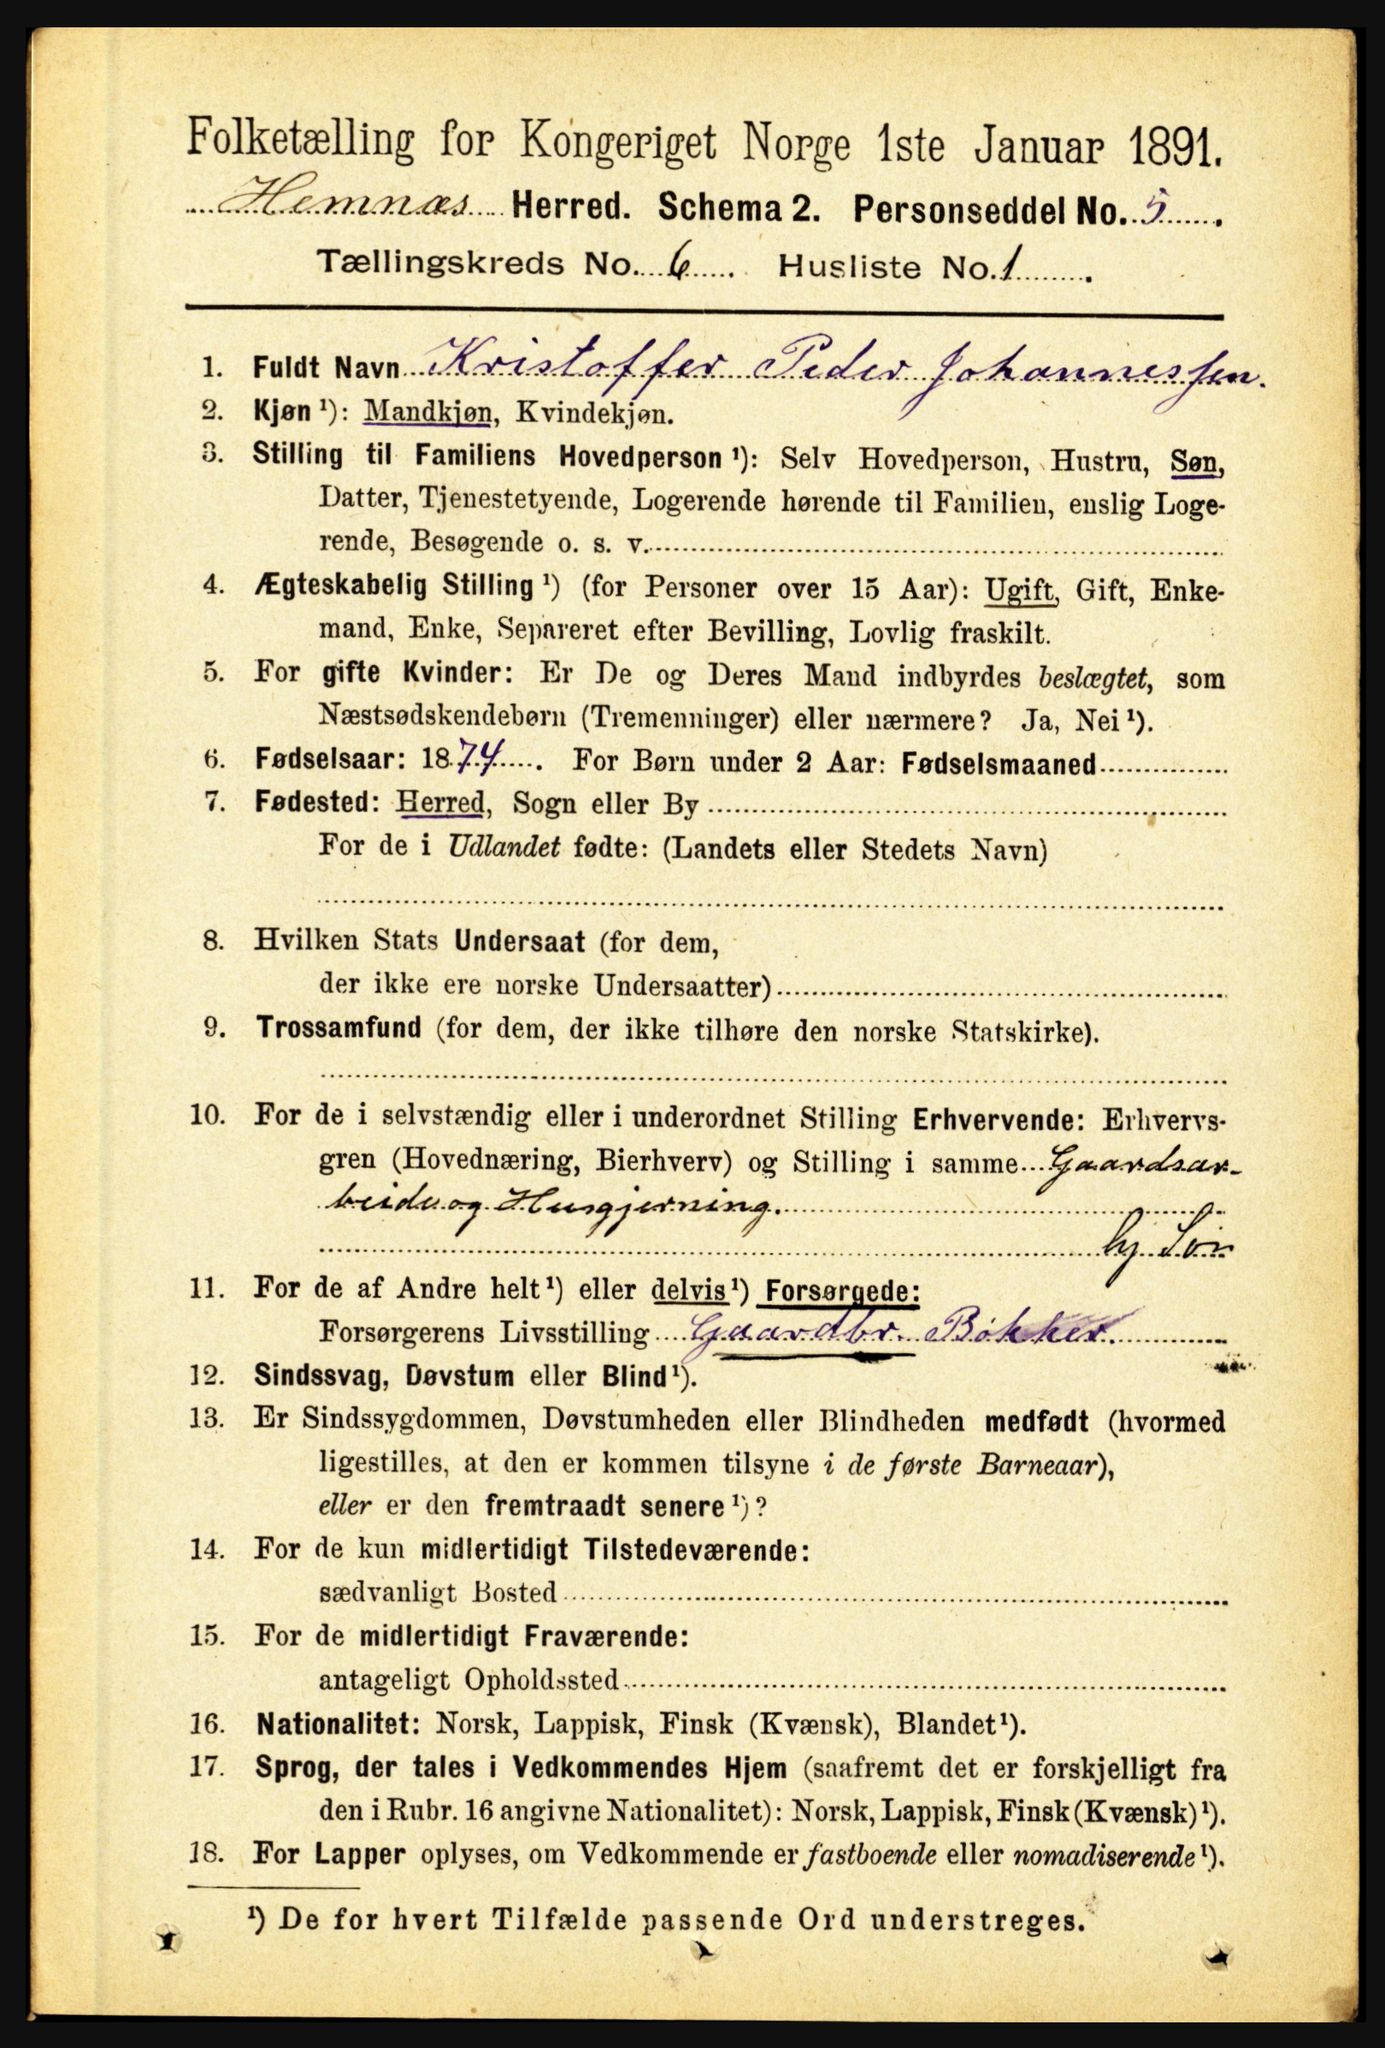 Folketælling for Kongeriget Norge 1ste Januar 1891.
Hemnæs Herred. Schema 2. Personseddel No. 5.
Tællingskreds No. 6. Husliste No. 1.
1. Fuldt Navn Kristoffer Peder Johannessen.
2. Kjøn ¹): Mandkjøn, Kvindekjøn.
3. Stilling til Familiens Hovedperson ¹): Selv Hovedperson, Hustru, Søn,
Datter, Tjenestetyende, Logerende hørende til Familien, enslig Loge-
rende, Besøgende o. s. v.
4. Ægteskabelig Stilling ¹) (for Personer over 15 Aar): Ugift, Gift, Enke-
mand, Enke, Separeret efter Bevilling, Lovlig fraskilt.
5. For gifte Kvinder: Er De og Deres Mand indbyrdes beslægtet, som
Næstsødskendebørn (Tremenninger) eller nærmere? Ja, Nei ¹).
6. Fødselsaar: 1874. For Børn under 2 Aar: Fødselsmaaned
7. Fødested: Herred, Sogn eller By
For de i Udlandet fødte: (Landets eller Stedets Navn)
8. Hvilken Stats Undersaat (for dem,
der ikke ere norske Undersaatter)
9. Trossamfund (for dem, der ikke tilhøre den norske Statskirke).
10. For de i selvstændig eller i underordnet Stilling Erhvervende: Erhvervs-
gren (Hovednæring, Bierhverv) og Stilling i samme Gaardsar-
beide og Husgjerning.
hj. Søn
11. For de af Andre helt ¹) eller delvis ¹) Forsørgede:
Forsørgerens Livsstilling Gaardbr. Bøkker.
12. Sindssvag, Døvstum eller Blind ¹).
13. Er Sindssygdommen, Døvstumheden eller Blindheden medfødt (hvormed
ligestilles, at den er kommen tilsyne i de første Barneaar),
eller er den fremtraadt senere ¹)?
14. For de kun midlertidigt Tilstedeværende:
sædvanligt Bosted
15. For de midlertidigt Fraværende:
antageligt Opholdssted
16. Nationalitet: Norsk, Lappisk, Finsk (Kvænsk), Blandet ¹).
17. Sprog, der tales i Vedkommendes Hjem (saafremt det er forskjelligt fra
den i Rubr. 16 angivne Nationalitet): Norsk, Lappisk, Finsk (Kvænsk) ¹).
18. For Lapper oplyses, om Vedkommende er fastboende eller nomadiserende ¹).
¹) De for hvert Tilfælde passende Ord understreges.